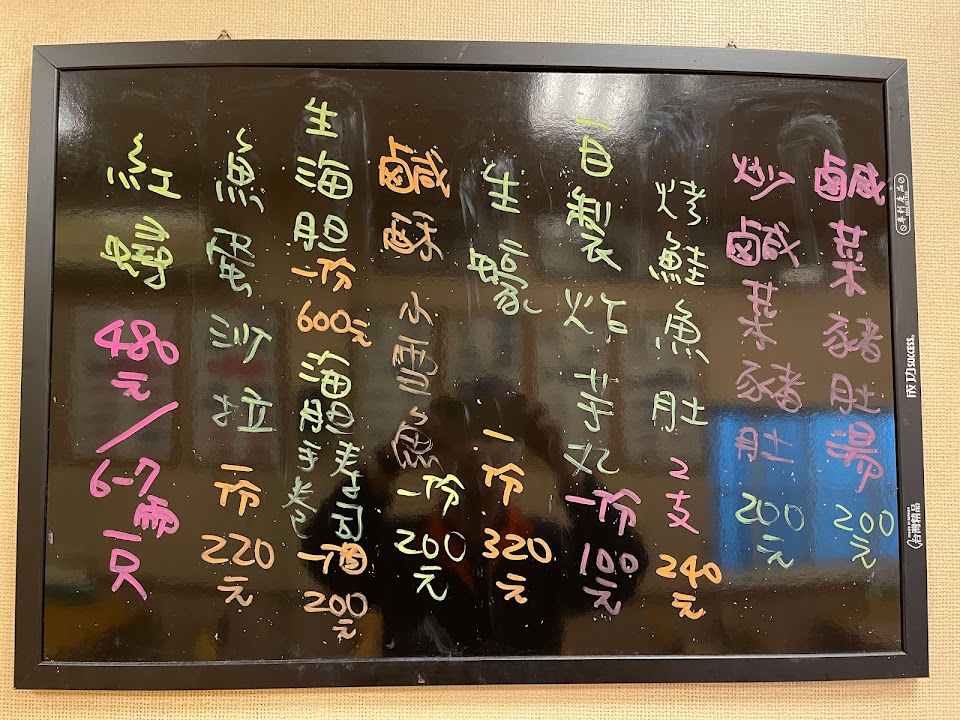 鹹菜豬肚湯 200元
炒鹹菜豬肚 200元
烤鮮魚肚 2支 240元
自製炸芋 一份 100元
生蠔 一份 320元
鹹酥小 魚 一份 200元
生海胆 一份 600元
海胆 壽司 手卷 一個 200元
魚蛋沙拉 一份 220元
紅蟳 480元/6-7兩一只
專利產品
成功 SUCCESS
台灣精品